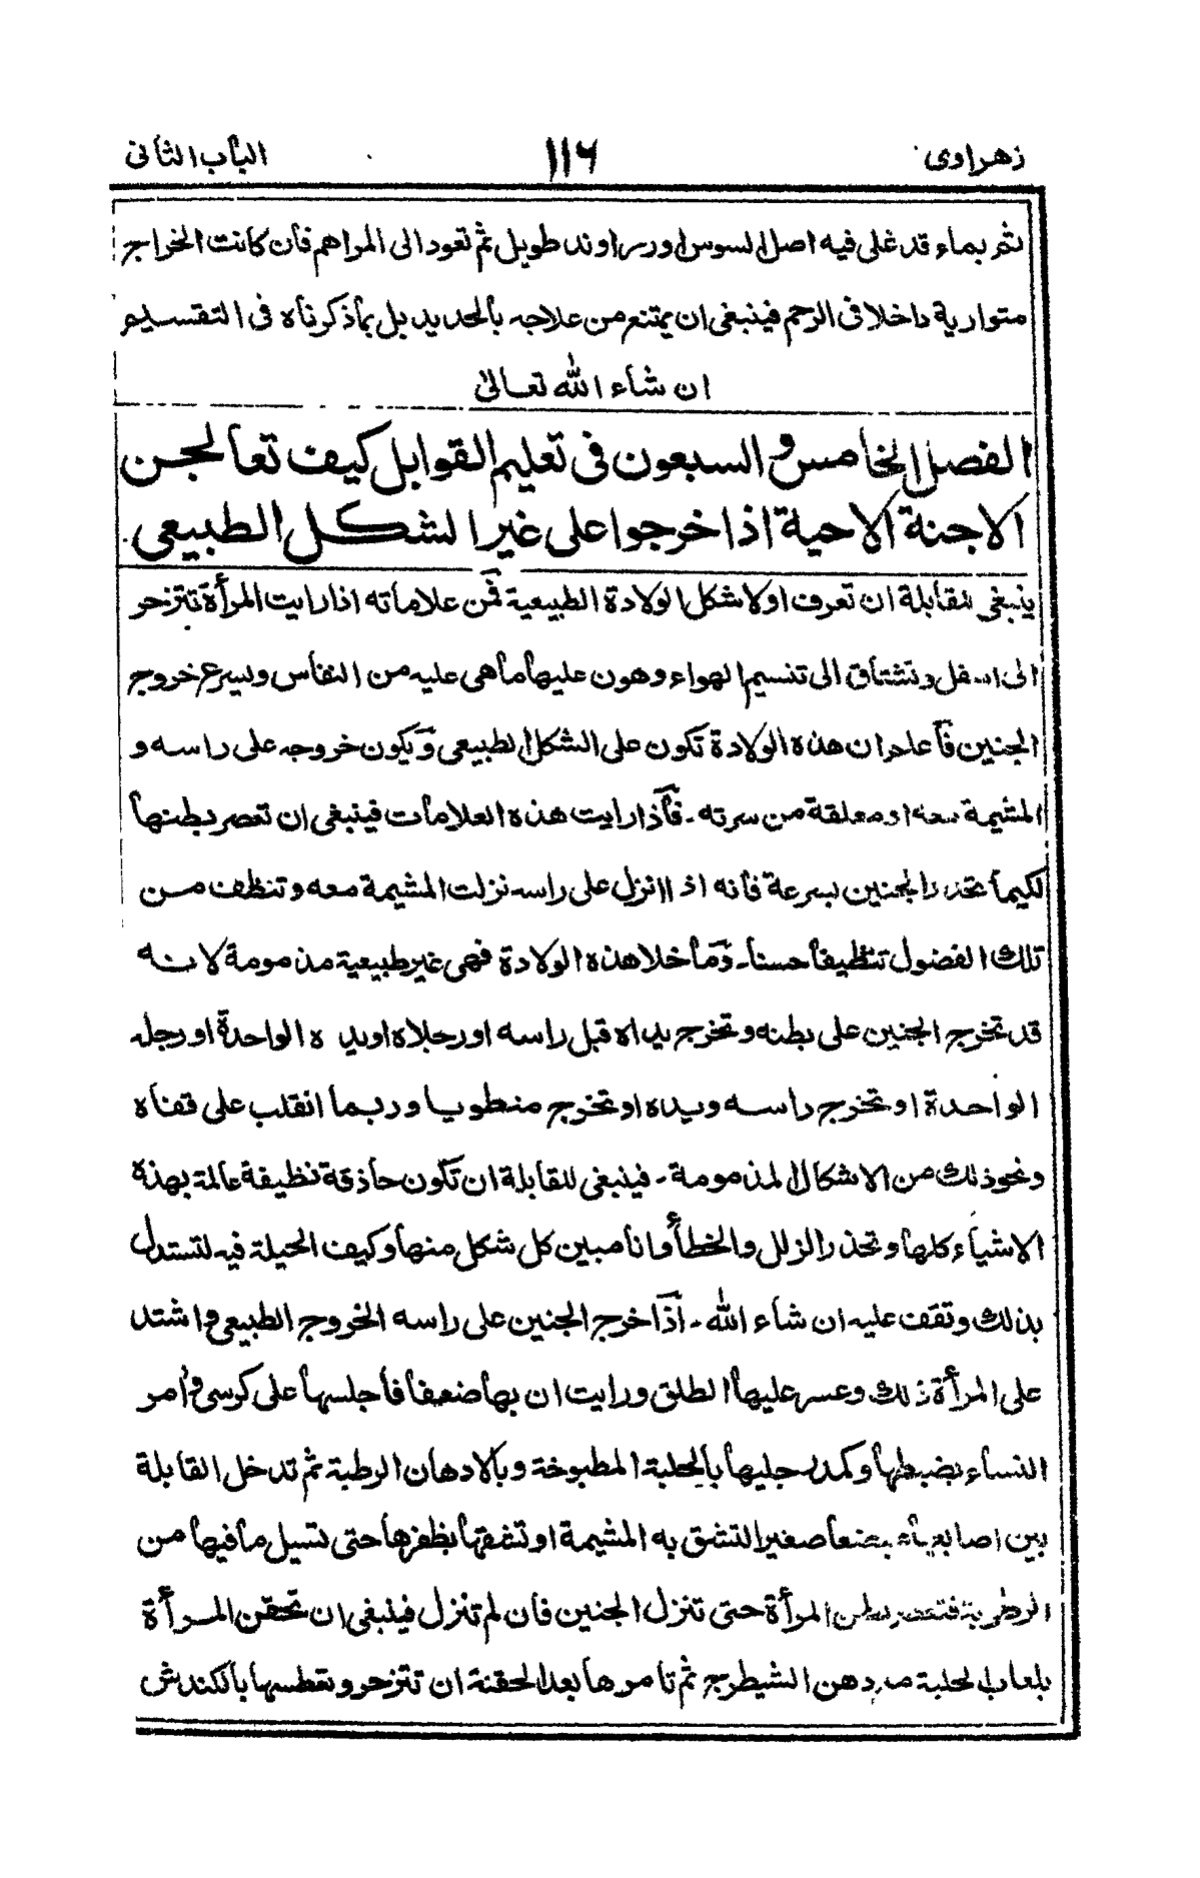 زهراوى ١١٦ الباب الثانى
ثم بماء قد غلى فيه اصل السوس او زراوند طويل ثم تعود الى المراهم فان كانت الخراج
متوارية داخلا فى الرحم فينبغى ان يمتنع من علاجه بالحديد بل بما ذكرناه فى التقسيم
ان شاء الله تعالىٰ
الفصل الخامس و السبعون فى تعليم القوابل كيف تعالجن
الاجنة الاحية اذا خرجوا على غير الشكل الطبيعى
ينبغى للقابلة ان تعرف اولا شكل الولادة الطبيعية فمن علاماته اذا رايت المرأة تتزحر
الى اسفل و تشتاق الى تنسيم الهواء و هون عليها ما هى عليه من النفاس و يسرع خروج
الجنين فاعلم ان هذه الولادة تكون على الشكل الطبيعى و يكون خروجه على راسه و
المشيمة معه او معلقة من سرته ـ فاذا رايت هذه العلامات فينبغى ان تعصر بطنها
لكيما ينحدر الجنين بسرعة فانه اذ اانزل على راسه نزلت المشيمة معه و تنظف من
تلك الفضول تنظيفا حسنا ـ و ما خلا هذه الولادة فهى غير طبيعية مذمومة لانه
قد تخرج الجنين على بطنه و تخرج يداه قبل راسه او رجلاه او يد ه الواحدة او رجله
الواحدة او تخرج راسه و يده او تخرج منطويا و ربما انقلب على قفاه
و نحو ذلك من الاشكال المذمومة ـ فينبغى للقابلة ان تكون حاذقة نظيفة عالمة بهذه
الاشياء كلها و تحذر الزلل و الخطأ و انا مبين كل شكل منها و كيف الحيلة فيه لتستدل
بذلك و تقف عليه ان شاء الله ـ اذا خرج الجنين على راسه الخروج الطبيعى و اشتد
على المرأة ذلك و عسر عليها الطلق و رايت ان بها ضعفا فاجلسها على كرسى و أمر
النساء بضبطها و كمد رجليها بالحلبة المطبوخة و بالادهان الرطبة ثم تدخل القابلة
بين اصابعها بضعا صغير التشق به المشيمة او تشقها بظفرها حتى تسيل ما فيها من
الرطوبة فتعصر بطن المرأة حتى تنزل الجنين فان لم تنزل فينبغى ان تحقن المرأة
بلعاب الحلبة مع دهن الشيطرج ثم تامرها بعد الحقنة ان تتزحر و تعطسها بالكندش